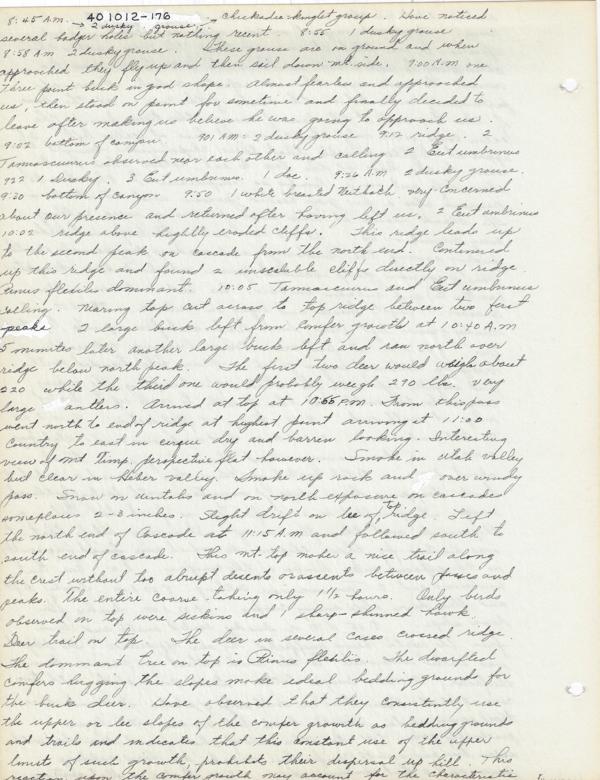 401012-176
8:45 A.M. → 2 dusky grouse, Chickadee-kinglet group. Have noticed
several badger holes but nothing recent. 8:55 1 dusky grouse
8:58 A.M. 2 dusky grouse. These grouse are on ground and when
approached they fly up and then sail down mt. side. 9:00 A.M one
three point buck in good shape. Almost fearless and approached
us, then stood on point for sometime and finally decided to
leave after making us believe he was going to approach us.
9:02 bottom of canyon. 9:01 AM = 2 dusky grouse 9:12 ridge. 2
Tamnasciurus observed near each other and calling 2 Eut umbrinus
9:22 1 Dusky. 3 Eut umbrinus. 1 doe. 9:26 A.M 2 dusky grouse.
9:30 bottom of canyon 9:50 1 white breasted Nuthach very concerned
about our presence and returned after having left us. 2 Eut umbrinus
10:02 ridge above highlly eroded cliffs. This ridge leads up
to the second peak on cascade from the north end. Continued
up this ridge and found 2 unscalable cliffs directly on ridge.
Pinus flexilis dominant. 10:05 Tamnasciurus and Eut umbrinus
calling. Nearing top cut across to top ridge between two first
peaks 2 large buck left from conifer growth at 10:40 A.M
5 minutes later another large buck left and ran north over
ridge below north peak. The first two deer would weigh about
220 while the third one would probbly weigh 290 lbs. very
large antlers. Arrived at top at 10:55 P.M. From this pass
went north to end of ridge at highest point arriving at 11:00
Country to east in cirque dry and barren looking. Interesting
view of Mt Timp. perspective flat however. Smoke in Utah Valley
but clear in Heber Valley. Smoke up rock and over windy
pass. Snow on uintahs and on north exposure on cascades
someplaces 2-3 inches. Slight drift on lee of the ridge. Left
the north end of Cascade at 11:15 A.M and followed south to
south end of cascade. This mt. top make a nice trail along
the crest without too abrupt desents or ascents between passes and
peaks. The entire coarse taking only 1 1/2 hours. Only birds
observed on top were siskins and 1 sharp-shinned hawk.
Deer trail on top. The deer in several cases crossed ridge.
The dominant tree on top is Pinus flexilis. The dwarfted
conifers hugging the slopes make ideal bedding grounds for
the buck deer. Have observed that they consistently use
the upper or lee slopes of the conifer growth as bedding grounds
and trails and indicates that this constant use of the upper
limits of such growth, prohibits their dispersal up hill. This
reaction upon the conifer growth may account for the characteristic